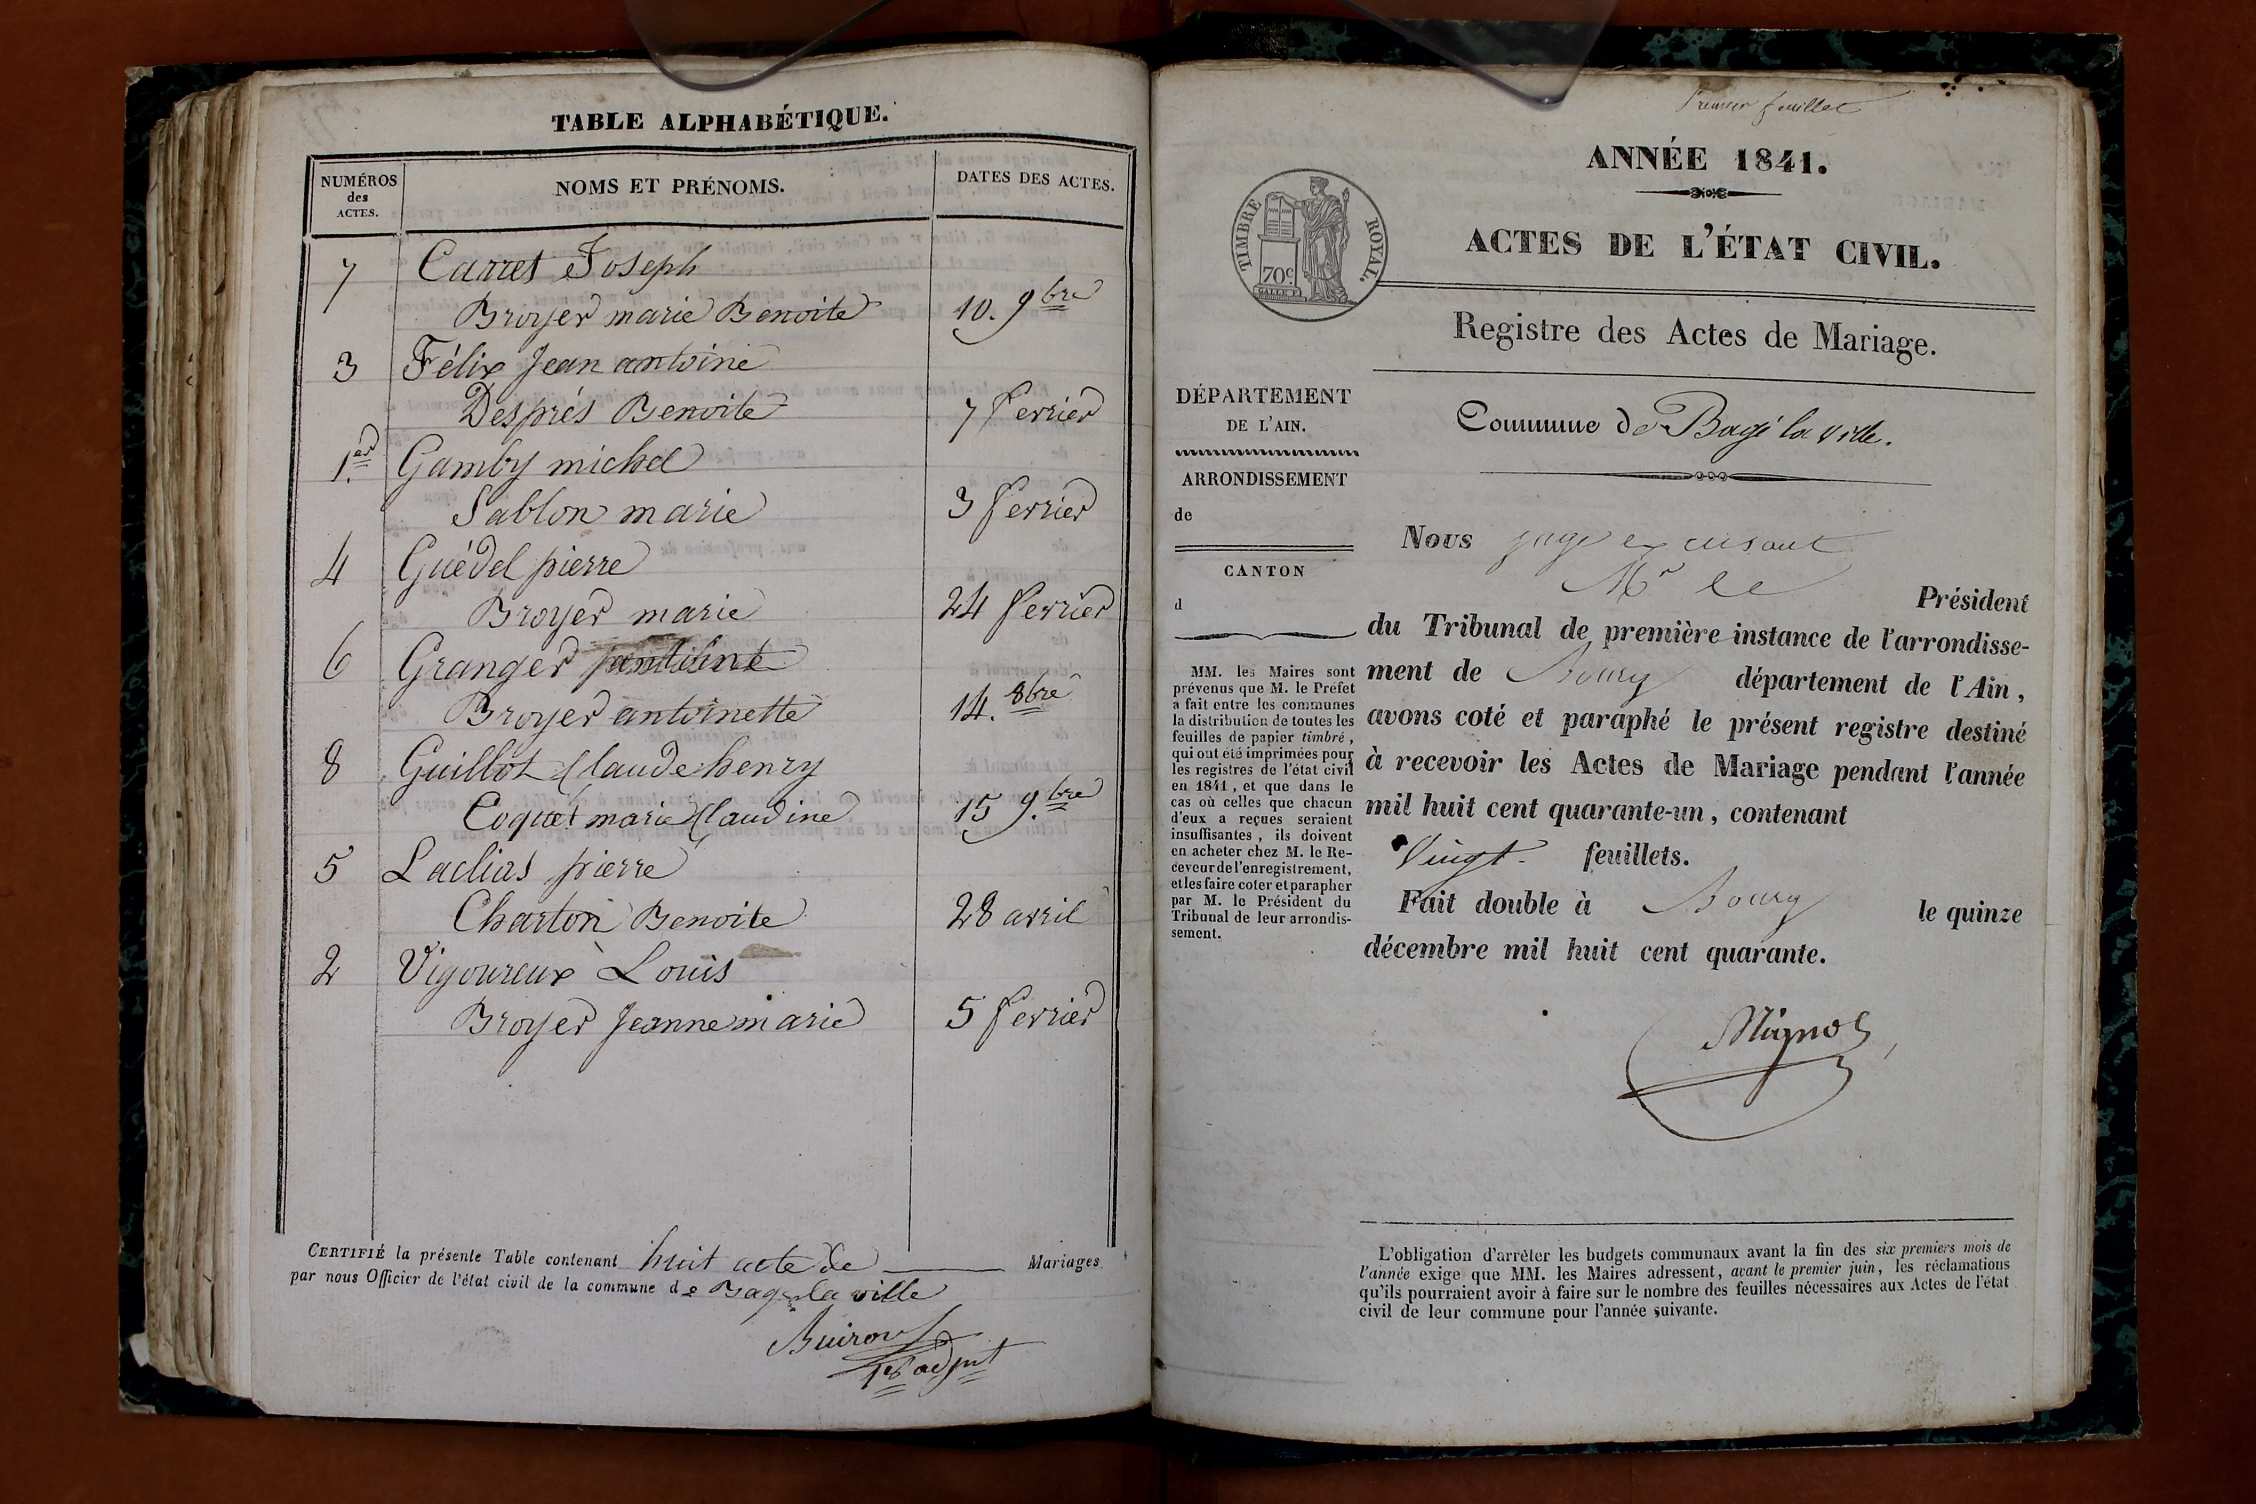 TABLE ALPHABÉTIQUE.
NUMÉROS
des
ACTES.
NOMS ET PRÉNOMS.
DATES DES ACTES.
7 Carret Joseph
Broyer marie Benoite 10. 9bre
3 Félix Jean antoine
Després Benoite 7 fevrier
1.er Gamby michel
Sablon marie 3 fevrier
4 Guédel pierre
Broyer marie 24 fevrier
6 Granger
Broyer antoinette 14. 8bre
8 Guillot Claude henry
Coquet marie Claudine 15 9.bre
5 pierre
Charton Benoite 28 avril
2 Vigoureux Louis
Broyer Jeanne marie 5 fevrier
CERTIFIÉ la présente Table contenant huit acte de Mariages
par nous Officier de l'état civil de la commune de Bagé la ville
Buiron
adjoint
Premier feuillet
ANNÉE 1841.
TIMBRE ROYAL.
70c
ACTES DE L'ÉTAT CIVIL.
Registre des Actes de Mariage.
Commune de Bagé la ville.
DÉPARTEMENT
DE L'AIN.
ARRONDISSEMENT
de
CANTON
d
MM. les Maires sont
prévenus que M. le Préfet
a fait entre les communes
la distribution de toutes les
feuilles de papier timbré,
qui ont été imprimées pour
les registres de l'état civil
en 1841, et que dans le
cas où celles que chacun
d'eux a reçues seraient
insuffisantes, ils doivent
en acheter chez M. le Re-
ceveur de l'enregistrement,
et les faire coter et parapher
par M. le Président du
Tribunal de leur arrondis-
sement.
Nous juge
Mr le Président
du Tribunal de première instance de l'arrondisse-
ment de Bourg département de l'Ain,
avons coté et paraphé le présent registre destiné
à recevoir les Actes de Mariage pendant l'année
mil huit cent quarante-un, contenant
Vingt feuillets.
Fait double à Bourg le quinze
décembre mil huit cent quarante.
Mignot
L'obligation d'arrêter les budgets communaux avant la fin des six premiers mois de
l'année exige que MM. les Maires adressent, avant le premier juin, les réclamations
qu'ils pourraient avoir à faire sur le nombre des feuilles nécessaires aux Actes de l'état
civil de leur commune pour l'année suivante.